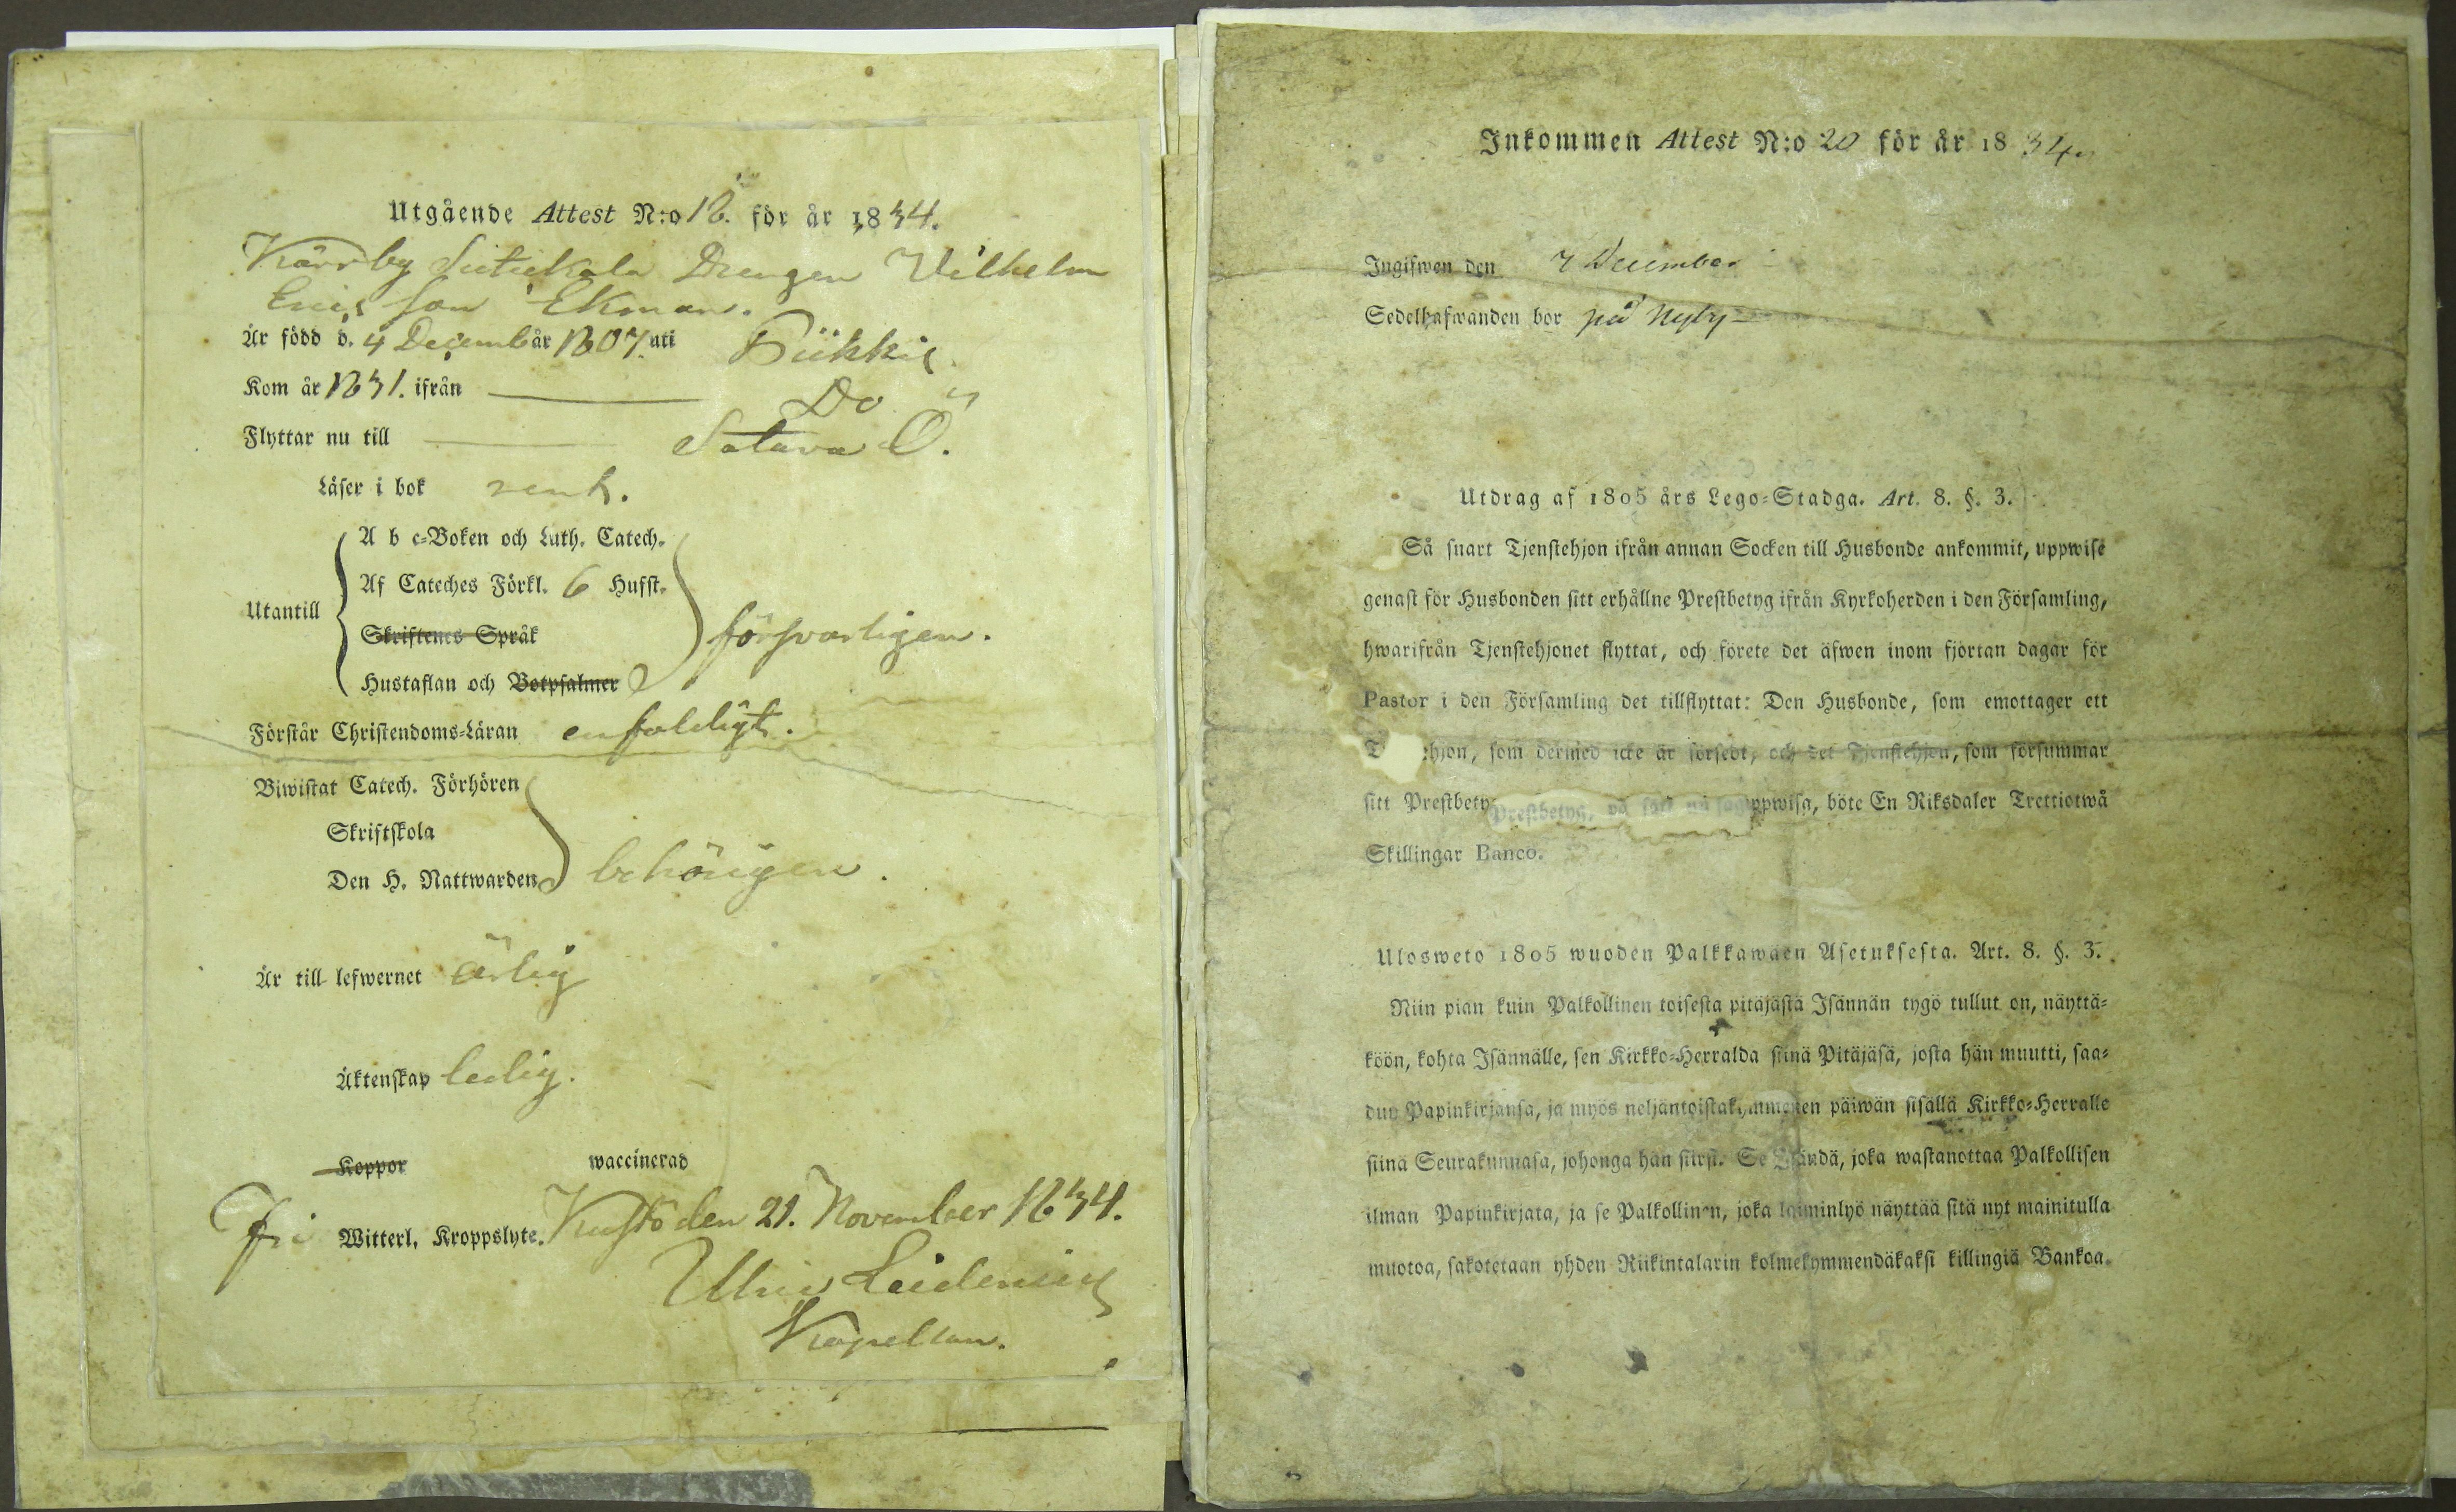 Utgående Attest N:o 18. för år 1834.
Kärrby Sutiekala Drengen Wilhelm
Ericsson Ekman.
Är född d. 4 Decemb år 1807. uti Piikkis
Kom år 1831. ifrån Do
Flyttar nu till Satava Ö.
Läser i bok rent.
A b c-Boken och Luth. Catech.
Af Cateches Förkl. 6 Hufst.
Utantill
Skriftenes Språk
försvarligen.
Hustaflan och Botpsalmer
Förstår Christendoms-Läran enfaldigt.
Biwistat Catech. Förhören
Skriftskola
Den H. Nattwarden behörigen.
Är till lefwernet ärlig
Äktenskap ledig.
Koppor waccinerad
fri Witterl. Kroppslyte. Kustö den 21. November 1834.
Leidenius
Kapellan.
Inkommen Attest N:o 20 för år 1834.
Ingifwen den 7 December
Sedelhafwanden bor på Nyby
Utdrag af 1805 års Lego-Stadga. Art. 8. §. 3.
Så snart Tjenstehjon ifrån annan Socken till Husbonde ankommit, uppwise
genast för Husbonden sitt erhållne Prestbetyg ifrån Kyrkoherden i den Församling,
hwarifrån Tjenstehjonet flyttat, och förete det äfwen inom fjortan dagar för
Pastor i den Församling det tillflyttat: Den Husbonde, som emottager ett
T hjon, som dermed icke är försedt, och det Tjenstehjon, som försummar
sitt Prestbety Prestbetyg, på sätt nu sag ppwisa, böte En Riksdaler Trettiotwå
Skillingar Banco.
Ulosweto 1805 wuoden Palkkawäen Asetuksesta. Art. 8. §. 3.
Niin pian kuin Palkollinen toisesta pitäjästä Isännän tygö tullut on, näyttä-
köön, kohta Isännälle, sen Kirkko-Herralda siinä Pitäjäsä, josta hän muutti, saa-
dun Papinkirjansa, ja myös neljäntoistakymmenen päiwän sisällä Kirkko-Herralle
siinä Seurakunnasa, johonga hän siirsi. Se Isändä, joka wastanottaa Palkollisen
ilman Papinkirjata, ja se Palkollinen, joka laiminlyö näyttää sitä nyt mainitulla
muotoa, sakotetaan yhden Riikintalarin kolmekymmendäkaksi killingiä Bankoa.